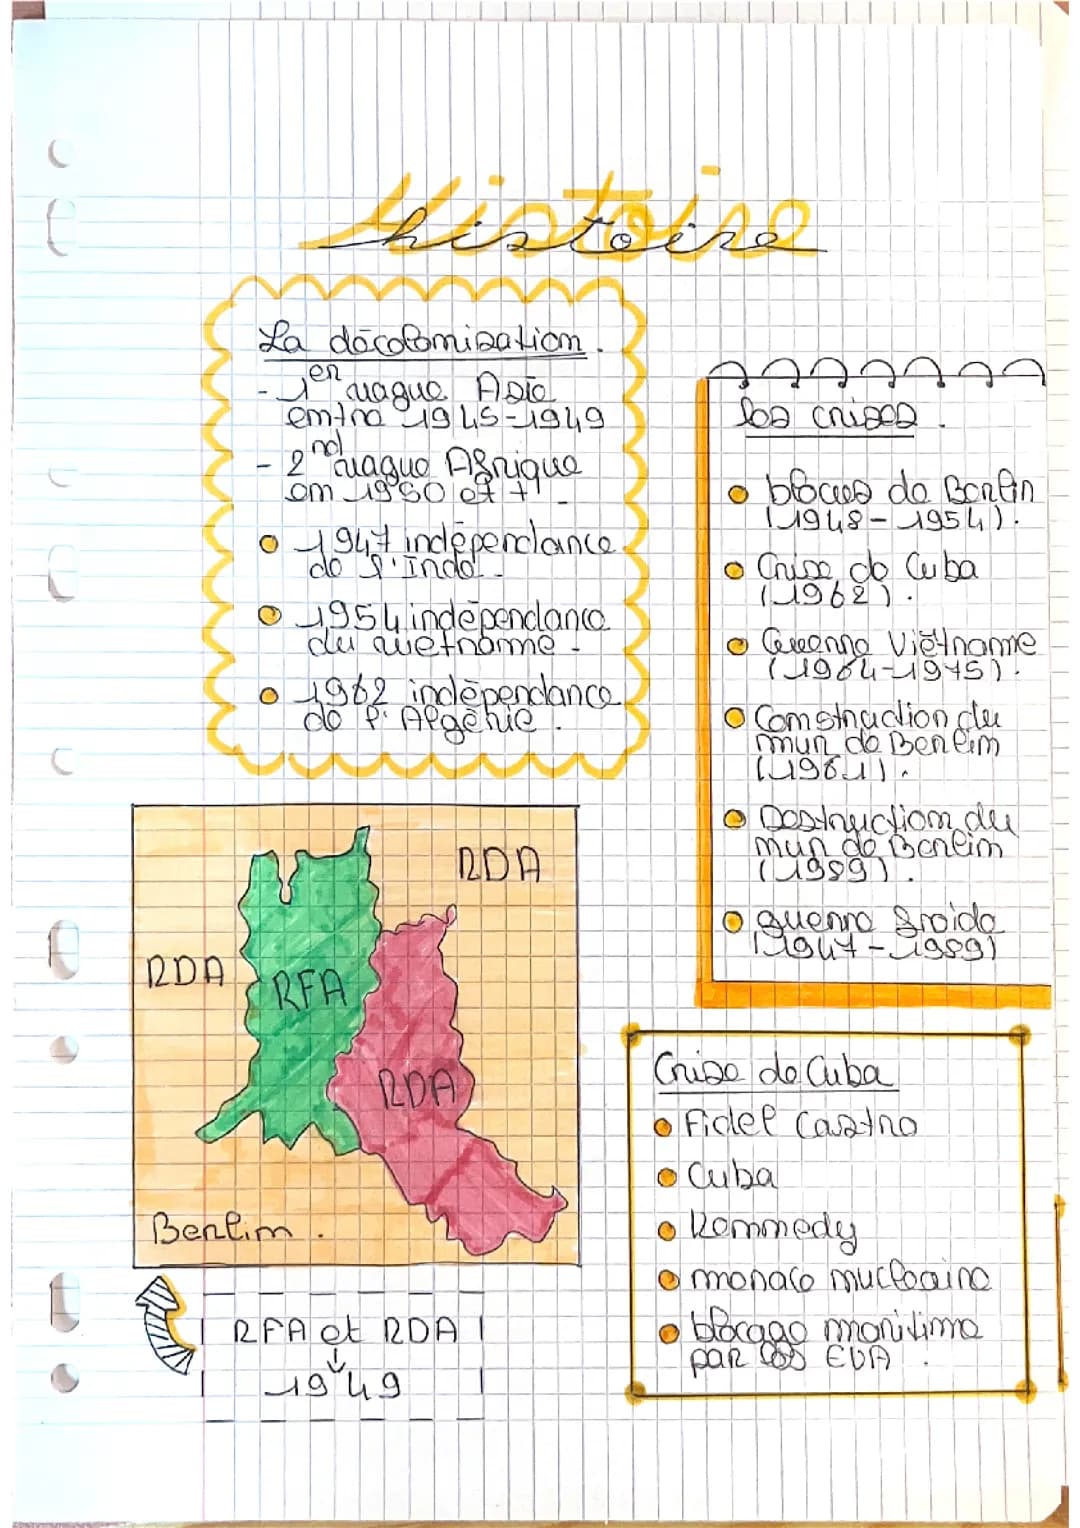 histoire
La décolonisation.
- 1er vague Asie
entre 1945-1949
- 2nd vague Afrique
en 1950 et +
1947 indépendance
de l'Inde.
1954 indépendance
du vietnamme.
1962 indépendance
de l'Algérie.
les crises.
blocus de Berlin
(1948-1954).
Crise de Cuba
(1962).
Guerre Viêtname
(1964-1975).
Construction du
mur de Berlin
(1961).
Destruction du
mur de Berlin
(1989).
guerre froide
(1947-1989)
RDA
RDA
RFA
RDA
Berlin.
RFA et RDA
↓
1949
Crise de Cuba
Fidel Castro
Cuba
Kennedy
menace nucléaire
blocage maritime
par les EUA.